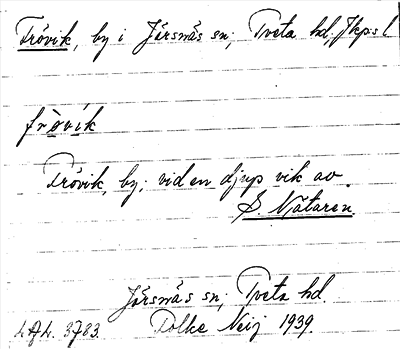 Frövik, by i Järsnäs sn; Tveta hd. Jkpsl
frövik
Frövik, by; vid en djup vik av
S. Nätaren.
Järsnäs sn; Tveta hd.
3783. Folke Neij 1939.